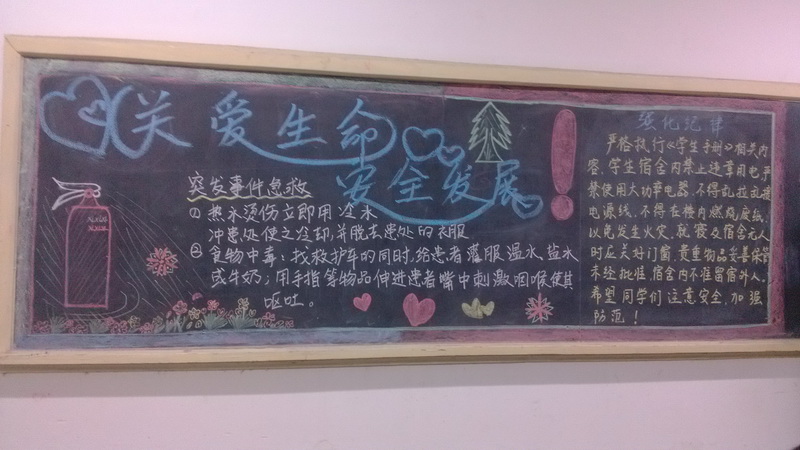 关爱生命
安全发展
突发事件急救
① 热水烫伤立即用冷水
冲患处使之冷却,并脱去患处的衣服
② 食物中毒:找救护车的同时,给患者灌服温水、盐水
或牛奶;用手指等物品伸进患者嘴中刺激咽喉使其
呕吐。
强化纪律
严格执行《学生手册》相关内
容,学生宿舍内禁止违章用电,严
禁使用大功率电器,不得乱拉乱接
电源线,不得在楼内燃烧废纸,
以免发生火灾,就寝及宿舍无人
时应关好门窗,贵重物品妥善保管
未经批准,宿舍内不准留宿外人。
希望同学们注意安全,加强
防范!